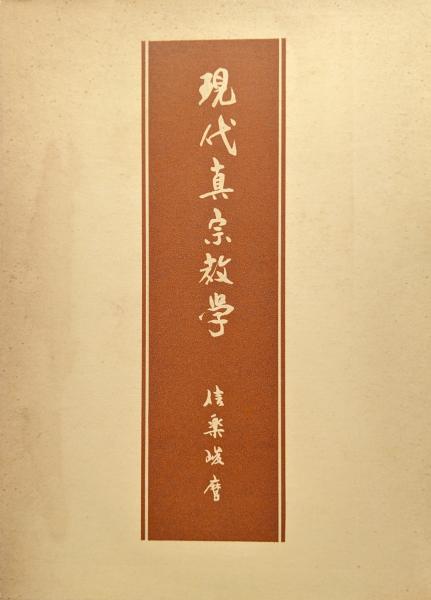 現代真宗教学
信楽峻麿